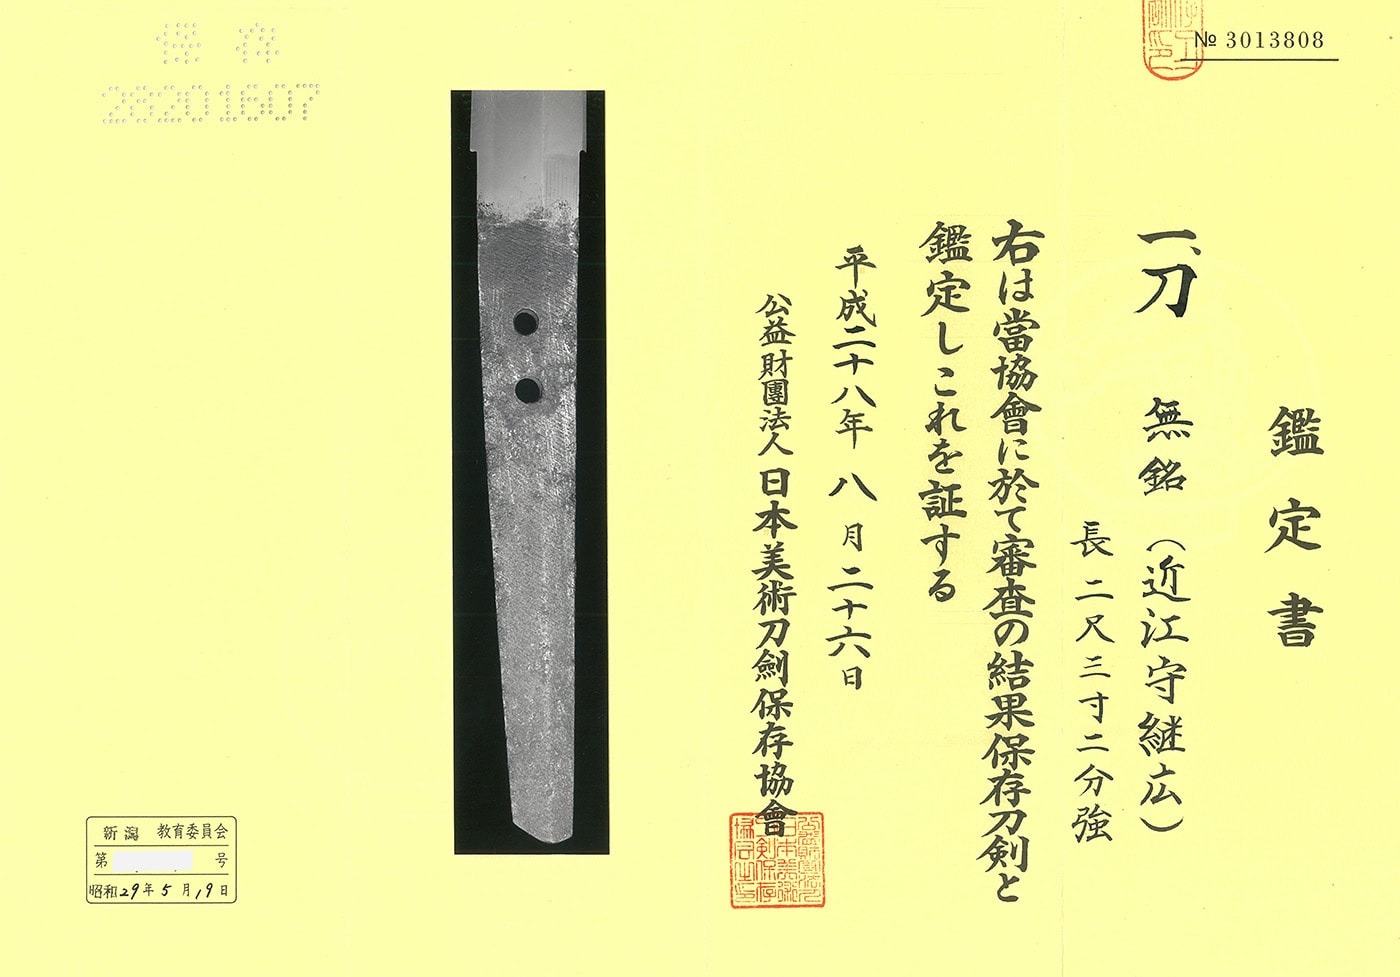 № 3013808
鑑定書
一、刀 無銘（近江守継広）
長二尺三寸二分強
右は當協會に於て審査の結果保存刀剣と
鑑定しこれを証する
平成二十八年八月二十六日
公益財團法人日本美術刀劍保存協會
保存
28201607
新潟 教育委員会
第 号
昭和29年5月19日